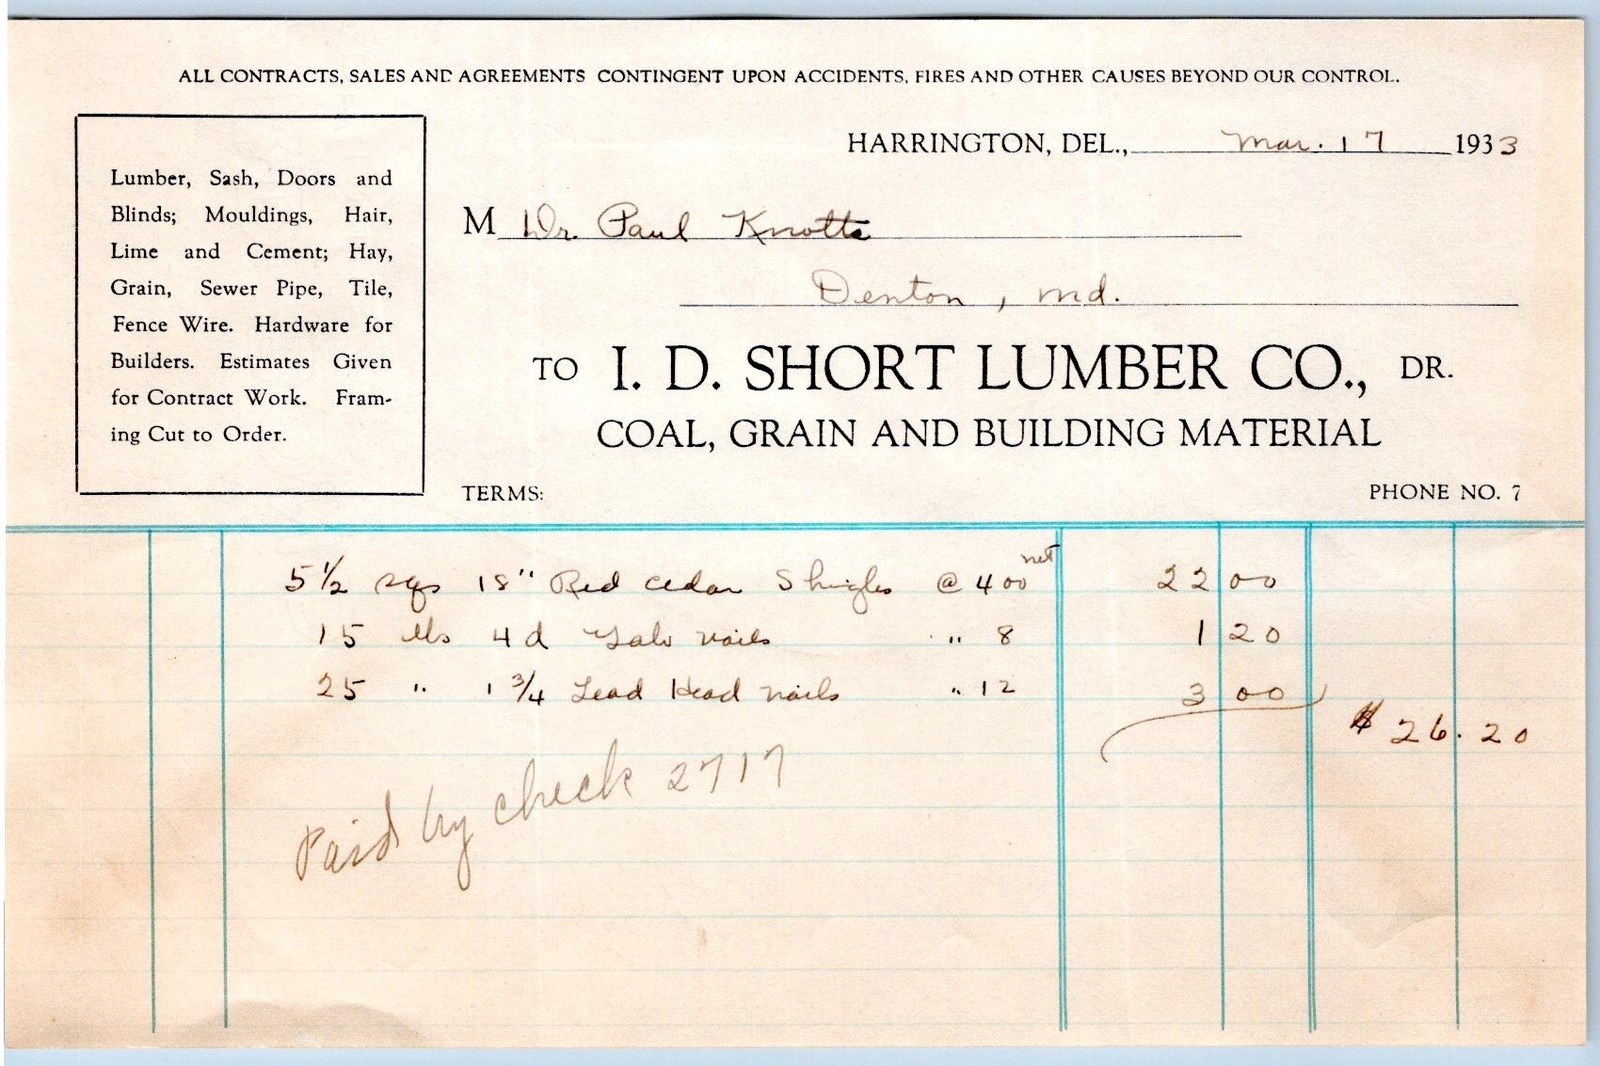 ALL CONTRACTS, SALES AND AGREEMENTS CONTINGENT UPON ACCIDENTS, FIRES AND OTHER CAUSES BEYOND OUR CONTROL.
Lumber, Sash, Doors and
Blinds; Mouldings, Hair,
Lime and Cement; Hay,
Grain, Sewer Pipe, Tile,
Fence Wire. Hardware for
Builders. Estimates Given
for Contract Work. Fram-
ing Cut to Order.
HARRINGTON, DEL., Mar. 17 1933
M Dr. Paul Knotts
Denton, Md.
TO I. D. SHORT LUMBER CO., DR.
COAL, GRAIN AND BUILDING MATERIAL
TERMS: PHONE NO. 7
5 1/2 sqs 18" Red Cedar Shingles @ 4 00 net 22 00
15 lbs 4 d Galv nails " 8 1 20
25 " 1 3/4 Lead Head nails " 12 3 00
$ 26.20
Paid by check 2717